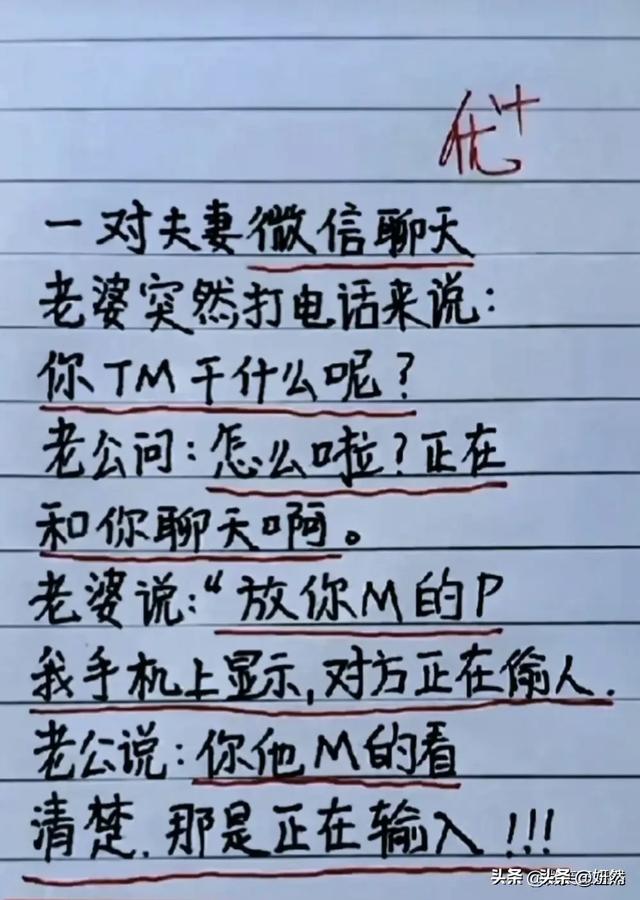 优+
一对夫妻微信聊天
老婆突然打电话来说:
你TM干什么呢?
老公问:怎么啦?正在
和你聊天啊。
老婆说:“放你M的P
我手机上显示,对方正在偷人.
老公说:你他M的看
清楚.那是正在输入!!!
头条@妍然